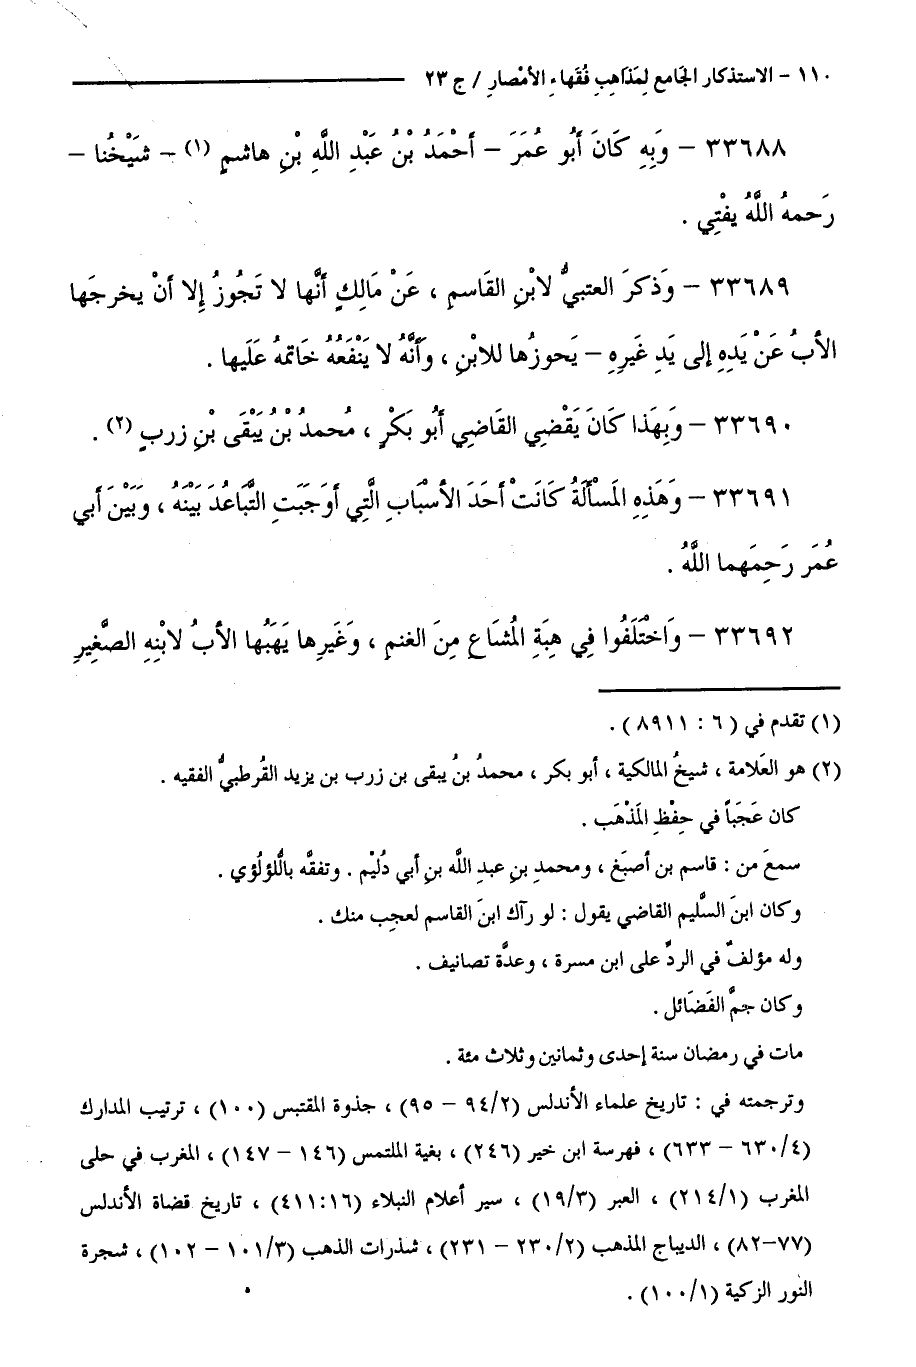 ١١٠ – الاستذكار الجَامع لِمَذاهِبِ فُقَهاءِ الأمْصارِ / ج ٢٣
٣٣٦٨٨ – وَبِهِ كَانَ أَبُو عُمَرَ – أَحْمَدُ بْنُ عَبْدِ اللَّهِ بْنِ هاشمٍ (١) – شَيْخُنا –
رَحمهُ اللَّهُ يفْتِي .
٣٣٦٨٩ – وَذكرَ العتبيُّ لابْنِ القَاسمِ ، عَنْ مَالِكٍ أنَّها لا تَجُوزُ إلا أنْ يخرجَها
الأبُ عَنْ يَدِهِ إلى يَدِ غَيرِهِ – يَحوزُها للابْنِ ، وَأَنَّهُ لا يَنْفَعُهُ خَاتمهُ عَلَيها .
٣٣٦٩٠ – وَبِهَذا كَانَ يَقْضِي القَاضِي أَبُو بَكْرٍ ، مُحمدُ بْنُ يَبْقَى بْنِ زربٍ (٢) .
٣٣٦٩١ – وَهَذِهِ المَسْأَلَةُ كَانَتْ أحَدَ الأسْبَابِ الَّتِي أوَجَبَتِ التَّبَاعُدَ بَيْنَهُ ، وَبَيْنَ أبي
عُمَر رَحِمَهما اللَّهُ .
٣٣٦٩٢ – وَاخْتَلَفُوا فِي هِبَةِ المُشَاعِ مِنَ الغنمِ ، وَغَيرِها يَهَبُها الأبُ لابْنِهِ الصَّغِيرِ
(١) تقدم في (٦ : ٨٩١١) .
(٢) هو العَلامة ، شيخُ المالكية ، أبو بكر ، محمدُ بنُ يبقى بن زرب بن يزيد القُرطبيُّ الفقيه .
كان عَجَباً في حِفْظِ المَذْهَب .
سمعَ من : قاسم بن أصبَغ ، ومحمدِ بنِ عبدِ اللَّه بنِ أبي دُلَيْم . وتفقَّه باللُّؤلُؤي .
وكان ابنَ السَّليم القاضي يقول : لو رآك ابنَ القاسم لعجب منك .
وله مؤلفٌ في الردِّ على ابن مسرة ، وعدَّة تصانيف .
وكان جمَّ الفَضَائل .
مات في رمضان سنة إحدى وثمانين وثلاث مئة .
وترجمته في : تاريخ علماء الأندلس (٩٤/٢ – ٩٥) ، جذوة المقتبس (١٠٠) ، ترتيب المدارك
(٦٣٠/٤ – ٦٣٣) ، فهرسة ابن خير (٢٤٦) ، بغية الملتمس (١٤٦ – ١٤٧) ، المغرب في حلى
المغرب (٢١٤/١) ، العبر (١٩/٣) ، سير أعلام النبلاء (٤١١:١٦) ، تاريخ قضاة الأندلس
(٧٧–٨٢) ، الديباج المذهب (٢٣٠/٢ – ٢٣١) ، شذرات الذهب (١٠١/٣ – ١٠٢) ، شجرة
النور الزكية (١٠٠/١) .